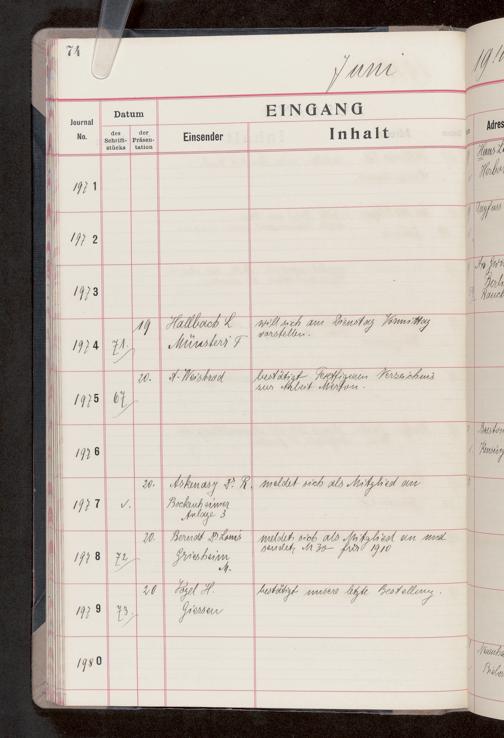 74
Juni
19
EINGANG
Journal No.
Datum
des Schrift-stücks
der Präsen-tation
Einsender
Inhalt
Adres
1971
1972
1973
1974 71. 19 Hallbach L will sich am Dienstag Vormittag
Münsterer vorstellen.
1975 67 20. A. Weisbrod bestätigt Verzeichnis
zur Arbeit Merton.
1976
1977 v. 20. Askenasy Dr. R. meldet sich als Mitglied an
Bockenheimer
Anlage 3
1978 72 20. Berndt Dr Louis meldet sich als Mitglied an und
Griesheim sendet M 30 für 1910
M.
1979 73. 20 H. bestätigt unsere letzte Bestellung.
Giessen
1980